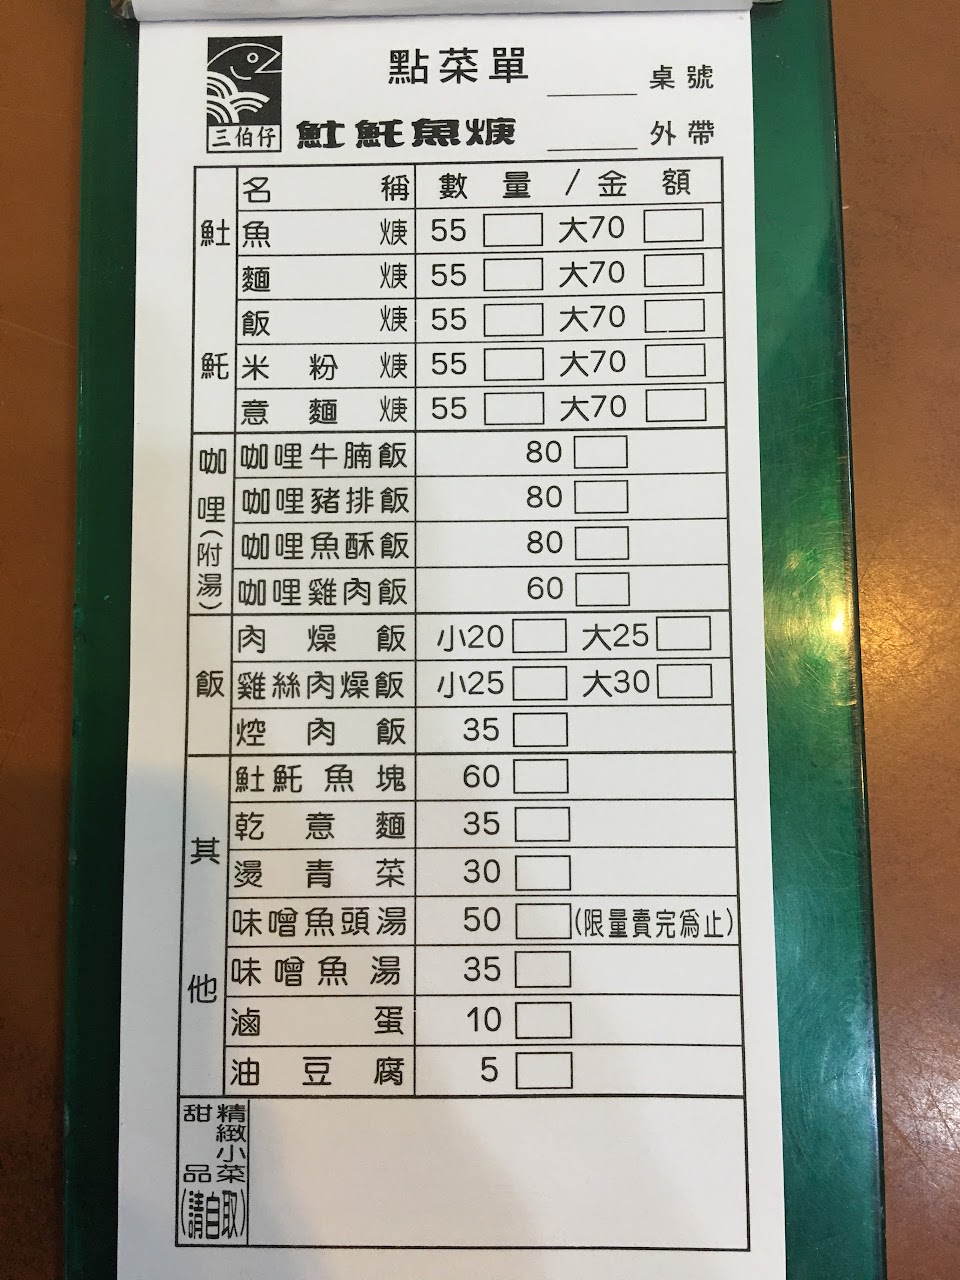 點菜單
桌號
三伯仔
𩵚魠魚焿
外帶
名稱 數量/金額
𩵚魠
魚焿 55 大70
麵焿 55 大70
飯焿 55 大70
米粉焿 55 大70
意麵焿 55 大70
咖哩(附湯)
咖哩牛腩飯 80
咖哩豬排飯 80
咖哩魚酥飯 80
咖哩雞肉飯 60
飯
肉燥飯 小20 大25
雞絲肉燥飯 小25 大30
焢肉飯 35
其他
𩵚魠魚塊 60
乾意麵 35
燙青菜 30
味噌魚頭湯 50 (限量賣完為止)
味噌魚湯 35
滷蛋 10
油豆腐 5
精緻小菜
甜品
(請自取)